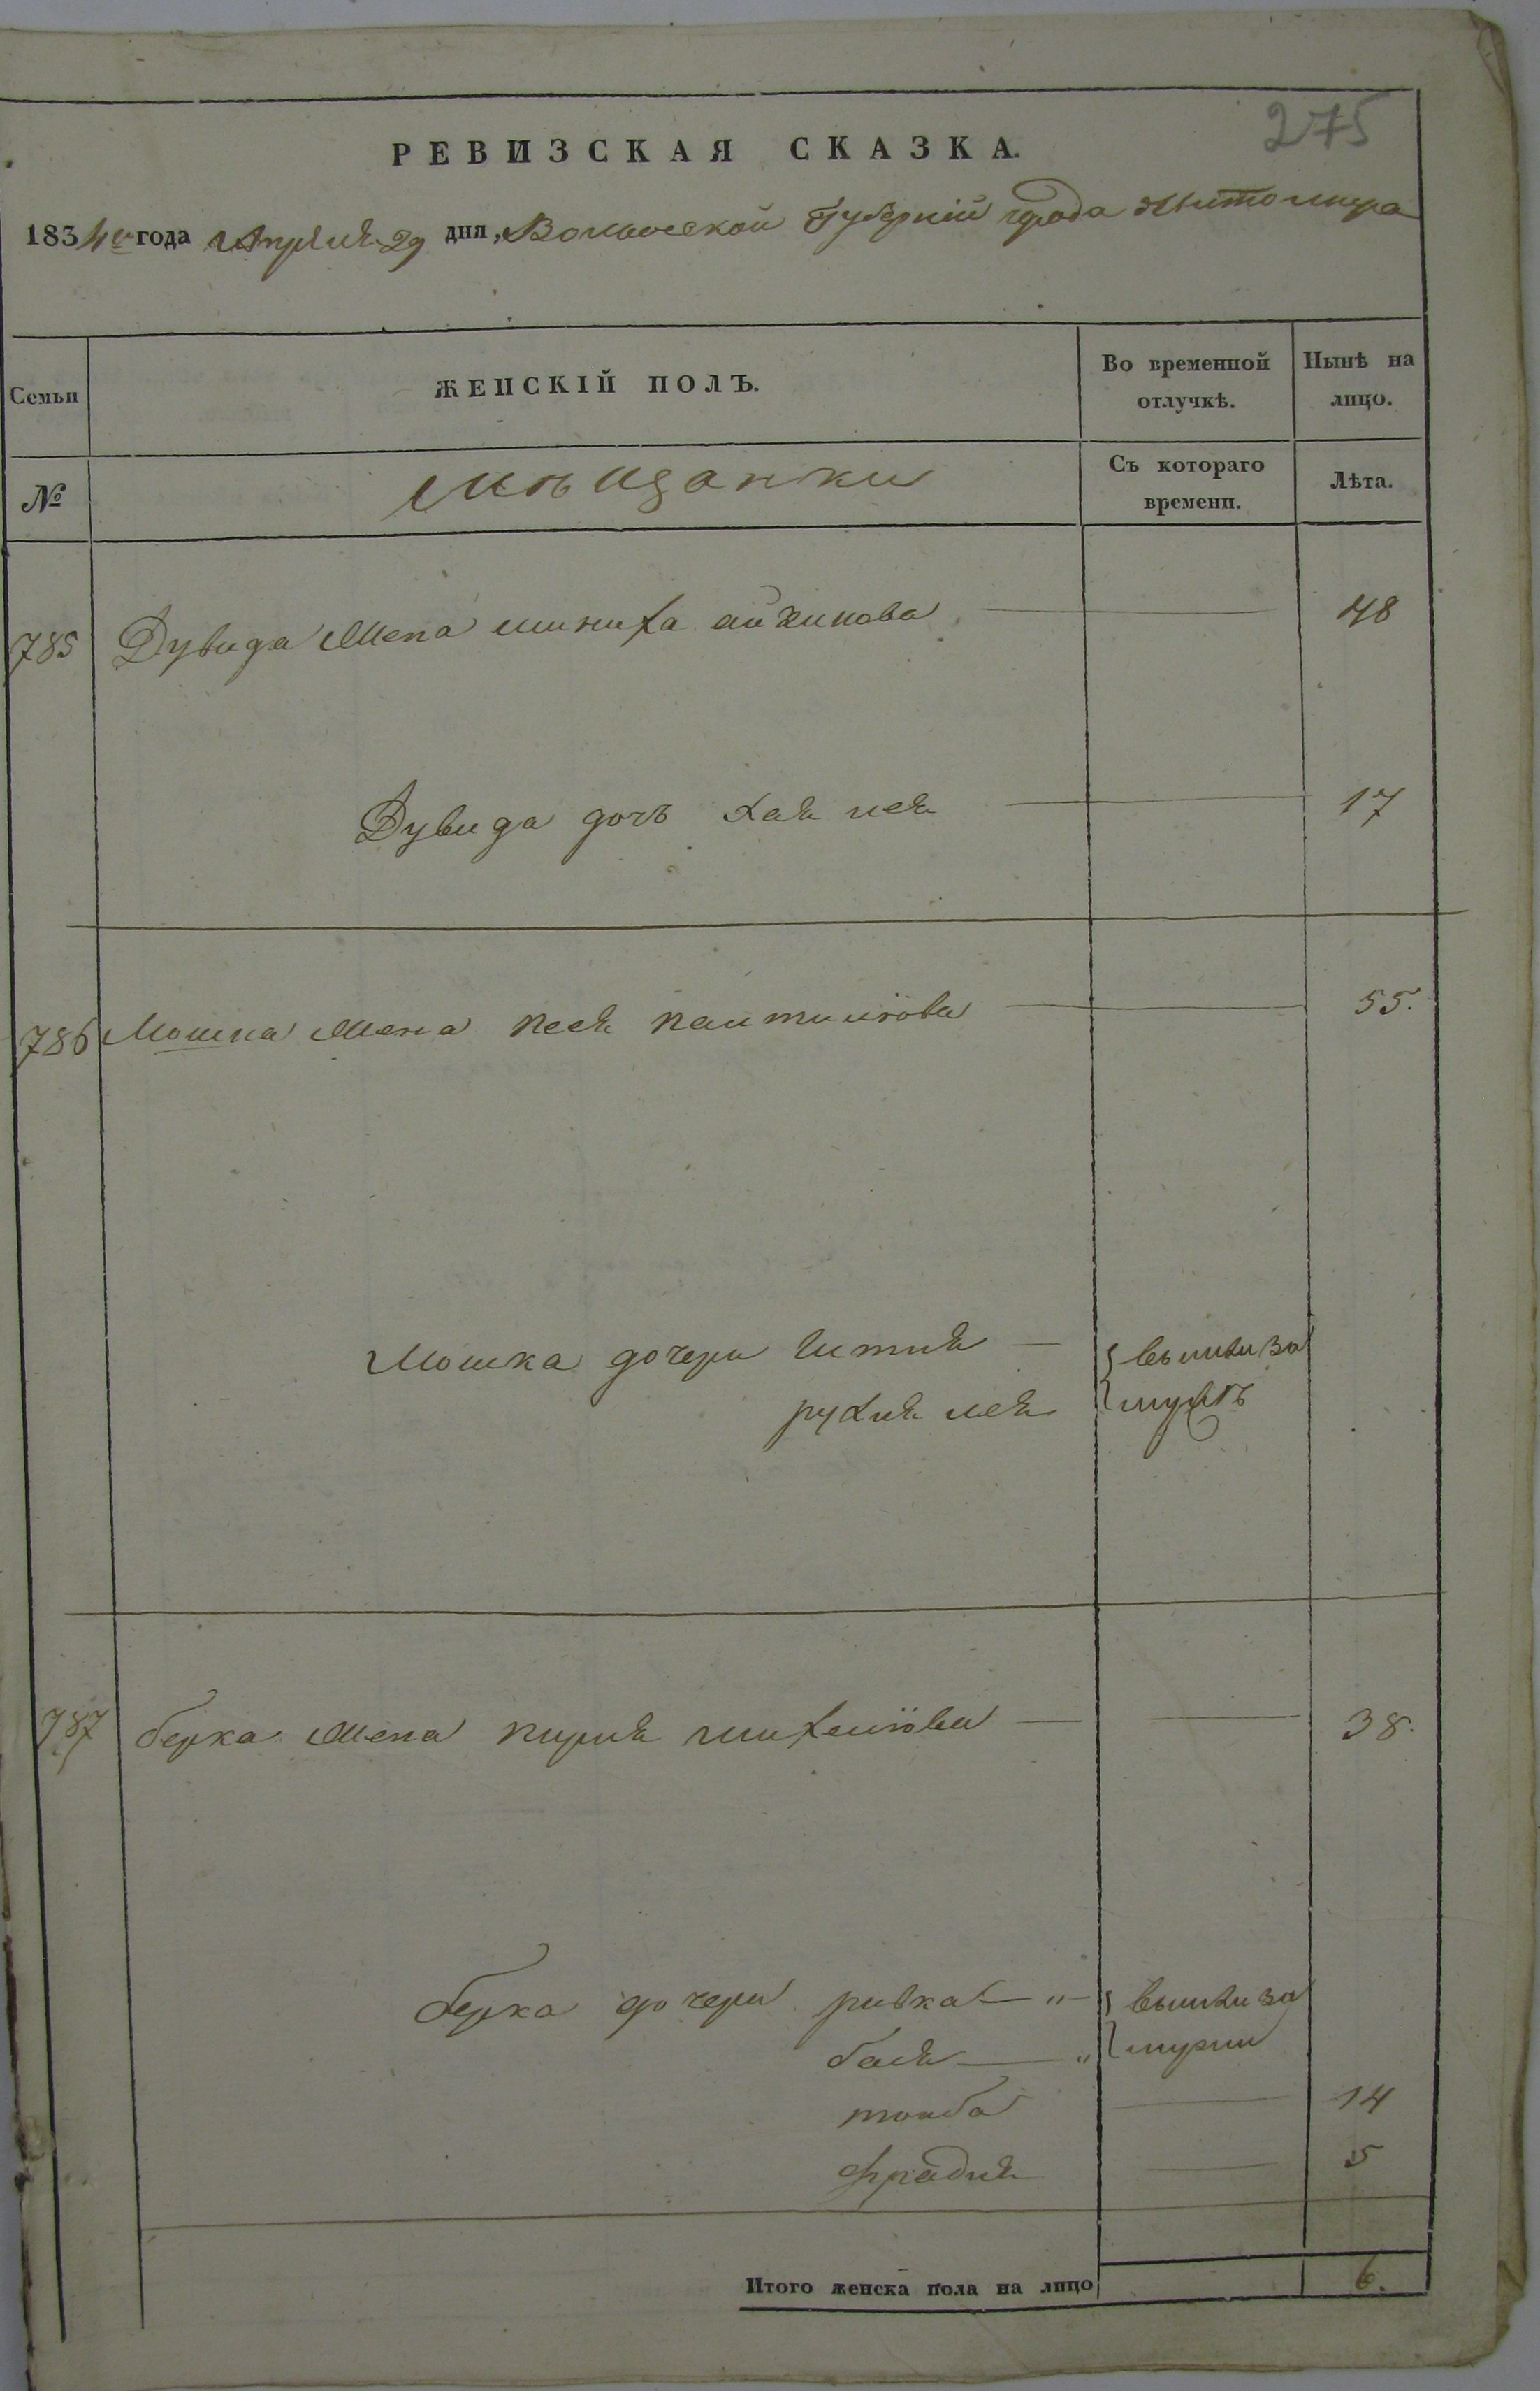 275
РЕВИЗСКАЯ СКАЗКА.
1834го года Апреля 29 дня, Волынской Губерніи города Житомира
Семьи
ЖЕНСКІЙ ПОЛЪ.
Во временной отлучкѣ.
Нынѣ на лицо.
№
Мѣщанки
Съ котораго времени.
Лѣта.
785 Дувида жена 48
Дувида дочь хая лея 17
786 Мошка жена песя 55.
Мошка дочери
рухля лея
вышли за
787 берка жена перля 38.
берка дочери ривка " вышли за
бася "
тоиба 14
фрадля 5
Итого женска пола на лицо 6.